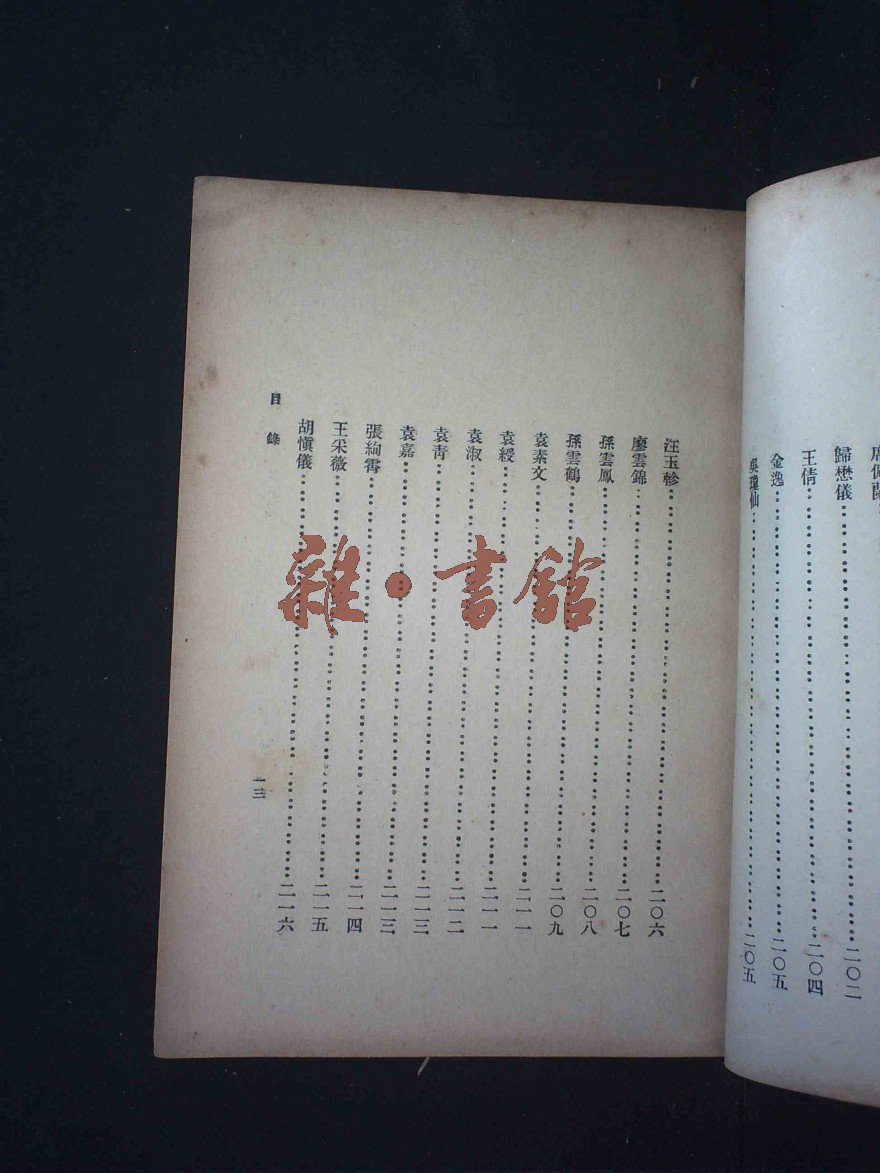 歸懋儀……二〇二
王倩……二〇四
金逸……二〇五
吳瓊仙……二〇五
汪玉軫……二〇六
廖雲錦……二〇七
孫雲鳳……二〇八
孫雲鶴……二〇九
袁素文……二一一
袁綬……二一一
袁淑……二一二
袁青……二一三
袁嘉……二一三
張絢霄……二一四
王采薇……二一五
胡愼儀……二一六
目錄 一三
雜·書館